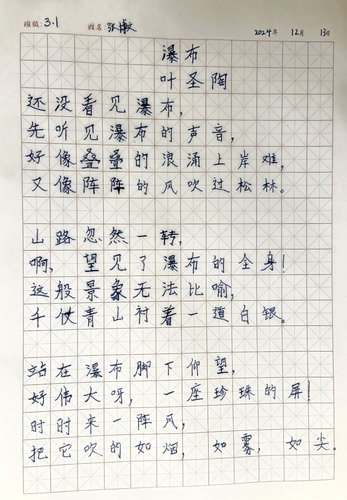 班级: 3.1 姓名 张 2024年 12月 13日
瀑布
叶圣陶
还没看见瀑布,
先听见瀑布的声音,
好像叠叠的浪涌上岸难,
又像阵阵的风吹过松林。
山路忽然一转,
啊, 望见了瀑布的全身!
这般景象无法比喻,
千仗青山衬着一道白银。
站在瀑布脚下仰望,
好伟大呀, 一座珍珠的屏!
时时来一阵风,
把它吹的如烟, 如雾, 如尖。